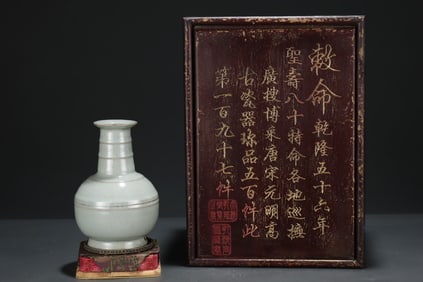 敕命 乾隆五十六年
聖壽八十特命各地巡撫
廣搜博采唐宋元明高
古瓷器珍品五百件此
第一百九十七件